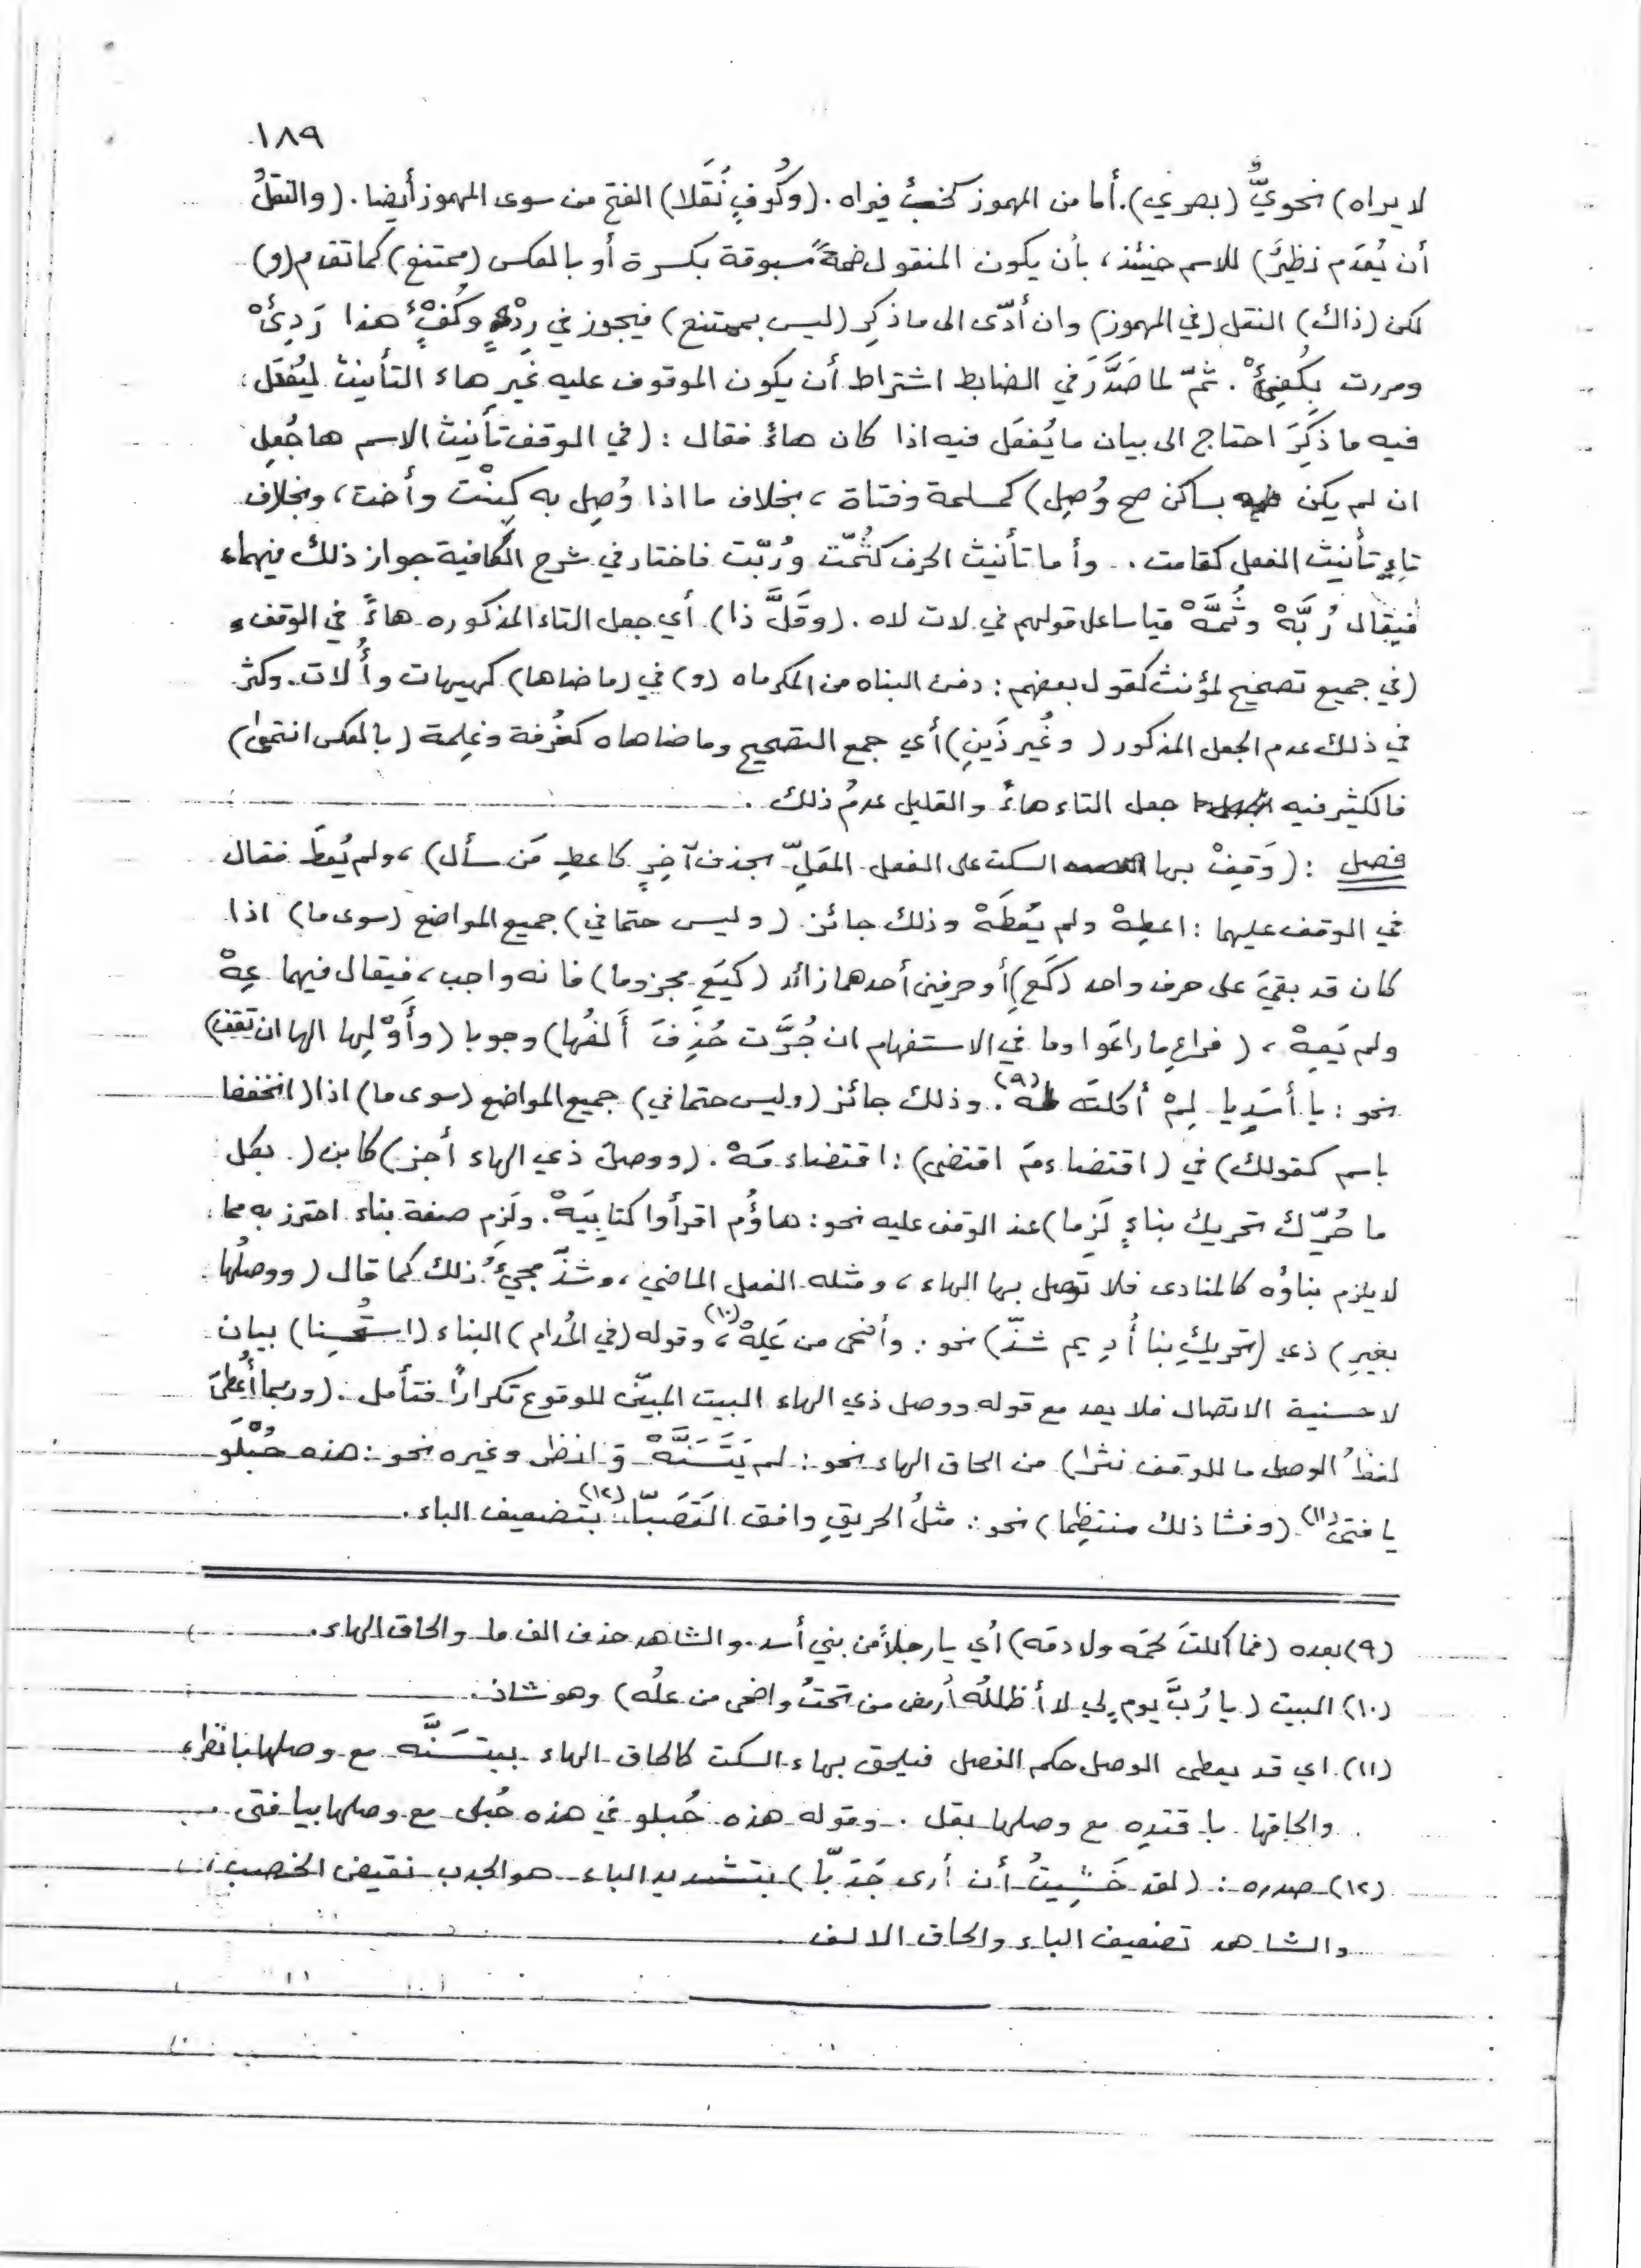 ١٨٩
لا يراه) نحويٌّ (بصري). أما من المهموز كخبْء فيراه. (وكُوفٍ نَقَلا) الفتح من سوى المهموز أيضا. (والنقلُ
أن يُعدَم نظيرٌ) للاسم حينئذ، بأن يكون المنقول ضمةً مسبوقة بكسرة أو بالعكس (ممتنع) كما تقدم (و)
لكن (ذاك) النقل (في المهموز) وان أدّى الى ما ذكِر (ليس بممتنع) فيجوز في رِدْءٍ وكُفْءٍ هذا رَدِئْ
ومررت بكُفِئْ. ثمّ لما صَدَّرَ في الضابط اشتراط أن يكون الموقوف عليه غير هاء التأنيث ليُفعَل
فيه ما ذكِرَ احتاج الى بيان ما يُفعَل فيه اذا كان هاءً فقال : (في الوقف تأنيث الاسم ها جُعِل
ان لم يكن بساكن صح وُصِل) كمسلمة وفتاة، بخلاف ما اذا وُصِل به كبِنْت وأخت، وبخلاف
تاءِ تأنيث الفعل كقامت. وأما تأنيث الحرف كثُمّت ورُبّت فاختار في شرح الكافية جواز ذلك فيهما
فيقال رُبَّهْ وثُمَّهْ قياسا على قولهم في لات لاه. (وقَلَّ ذا) أي جعل التاء المذكوره هاءً في الوقف
(في جميع تصحيح لمؤنث كقول بعضهم : دفن البناه من المكرماه (و) في (ما ضاها) كهيهات وأُلات. وكثر
في ذلك عدم الجعل المذكور (وغُير ذَينِ) أي جمع التصحيح وما ضاهاه كغُرفة وغِلمة (بالعكس انتمىٰ)
فالكثير فيه جعل التاء هاءً والقليل عدمُ ذلك.
فصل : (وَقِفْ بها السكت على الفعل المعَلّ بحذف آخِرٍ كاعطِ مَن سأل)، ولم يُعطَ فقال
في الوقف عليهما : اعطِهْ ولم يُعْطَهْ وذلك جائز (وليس حتما في) جميع المواضع (سوى ما) اذا
كان قد بقيَ على حرف واحد (كَعِ) أو حرفين أحدهما زائد (كيَعِ مجزوما) فانه واجب، فيقال فيهما عِهْ
ولم يَعِهْ، (فراعِ ما راعَوا وما في الاستفهام ان جُرَّت حُذِفَ ألفُها) وجوبا (وأَوْلِها الها ان تقِف)
نحو : يا أسَدِيا لِمْ أكلتَه لِمَهْ (٩). وذلك جائز (وليس حتما في) جميع المواضع (سوى ما) اذا (انخفضا
باسم كقولك) في (اقتضاءمَ اقتضى) : اقتضاء مَهْ. (ووصلَ ذي الهاء أجز) كائن (بكل
ما حُرّك تحريك بناءٍ لَزِما) عند الوقف عليه نحو : هاؤُم اقرأوا كتابِيَهْ. ولَزِم صفة بناء احترز به مما
لا يلزم بناؤه كالمنادى فلا توصل بها الهاء، ومثله الفعل الماضي، وشذّ مجيءُ ذلك كما قال (ووصلُها
بغيرِ) ذي (تحريكِ بنا أُدِيم شذّ) نحو : وأضحى من عَلِهْ (١٠)، وقوله (في المُدام) البناء (استُحسِنا) بيان
لاحسنية الاتصال فلا يعد مع قوله ووصل ذي الهاء البيت المبيّن للوقوع تكراراً فتأمل. (وربما أُعطِيَ
لفظُ الوصل ما للوقف نثرا) من الحاق الهاء نحو : لم يَتَسَنَّهْ وَ انظر وغيره نحو : هذه حُبْلَوْ
يا فتىٰ (١١) (وفشا ذلك منتظِما) نحو : مثلُ الحريقِ وافق القَصَبّا (١٢) بتضعيف الباء.
(٩) بعده (فما أكلتَ لحمَه ولا دمَه) أي يا رجلاً من بني أسد. والشاهد حذف الف ما والحاق الهاء.
(١٠) البيت (يا رُبَّ يوم لي لا أظللُه أُرمض من تحتُ واضحى من علُه) وهو شاذ.
(١١) اي قد يعطى الوصل حكم الفصل فيلحق بهاء السكت كالحاق الهاء بيتسَنَّه مع وصلها بانظر
والحاقها باقتده مع وصلها بقل. وقوله هذه حُبلو في هذه حُبلى مع وصلها بيا فتى.
(١٢) صدره : (لقد خَشِيتُ أن أرى جَدَبّا) بتشديد الباء هو الجدب نقيض الخصب،
والشاهد تضعيف الباء والحاق الالف